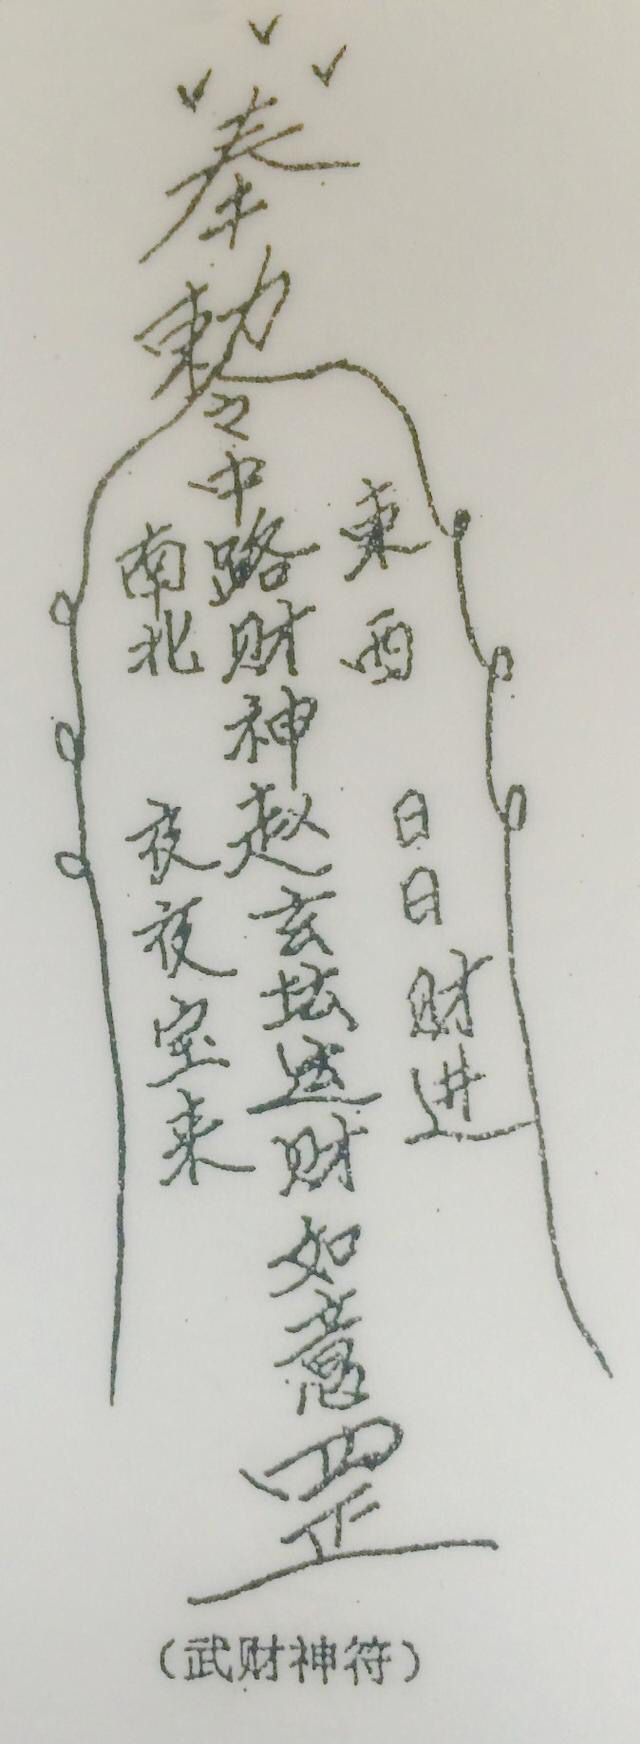 奉
勅
之中路财神赵玄坛进财如意
罡
東西
南北
日日财进
夜夜宝来
（武财神符）